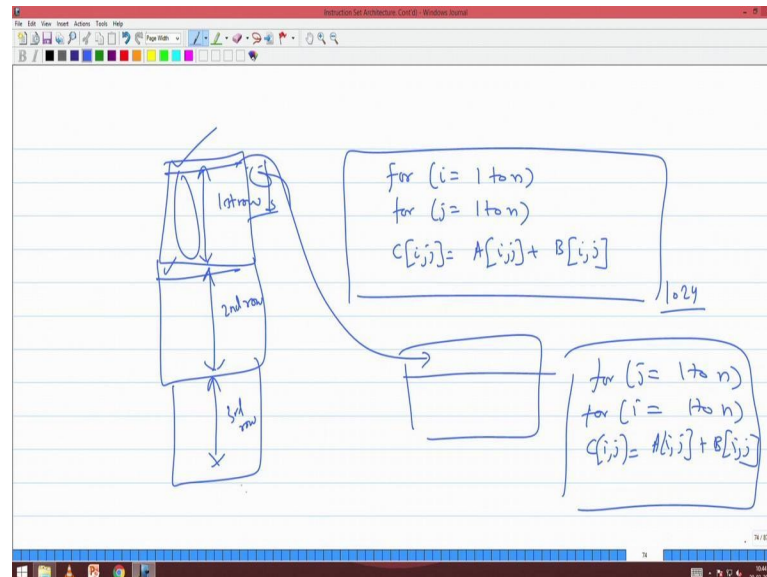 Instruction Set Architecture (Cont'd) - Windows Journal
File Edit View Insert Actions Tools Help
Page Width
B I
1st row
2nd row
3rd row
for (i = 1 to n)
for (j = 1 to n)
C[i,j] = A[i,j] + B[i,j]
1024
for (j = 1 to n)
for (i = 1 to n)
C[i,j] = A[i,j] + B[i,j]
74